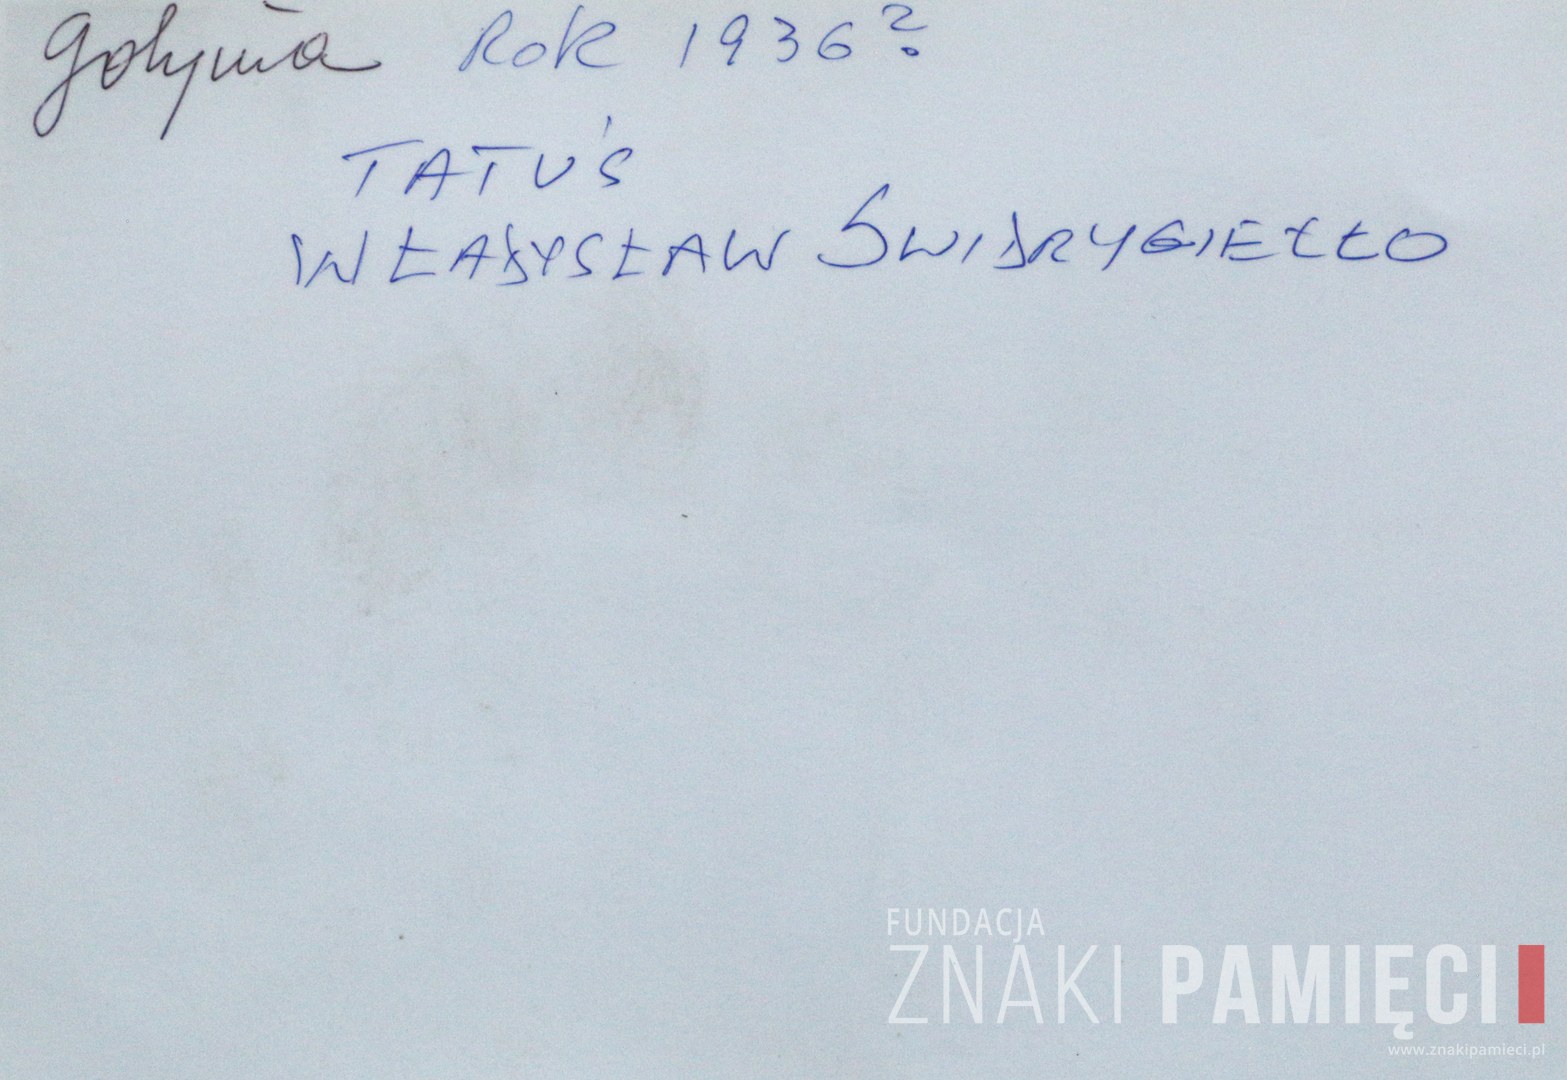 Gdynia Rok 1936?
TATUŚ
WŁADYSŁAW ŚWIDRYGIEŁŁO
FUNDACJA
ZNAKI PAMIĘCI
www.znakipamieci.pl